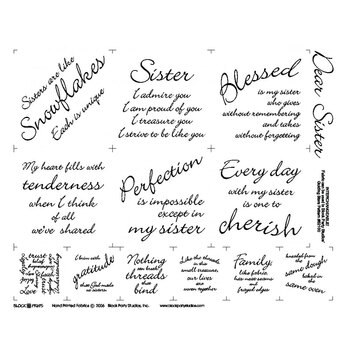 Sisters are like
Snowflakes
Each is unique
Sister
I admire you
I am proud of you
I treasure you
I strive to be like you
Blessed
is my sister
who gives
without remembering
and takes
without forgetting
Dear Sister
My heart fills with
tenderness
when I think
of all
we've shared
Perfection
is impossible
except in
my sister
Every day
with my sister
is one to
cherish
trust
belief
respect
joy
Love
gratitude
Nothing
can break
threads
that bind
our
Like the threads
in this
small treasure,
our lives
are woven
together
Family,
like fabric,
has most seams
and
frayed edges
kneaded from
the
same dough
baked in
the same
BLOCK PARTY PRINTS
Hand Printed Fabrics © 2006 Block Party Studios, Inc. www.blockpartystudios.com